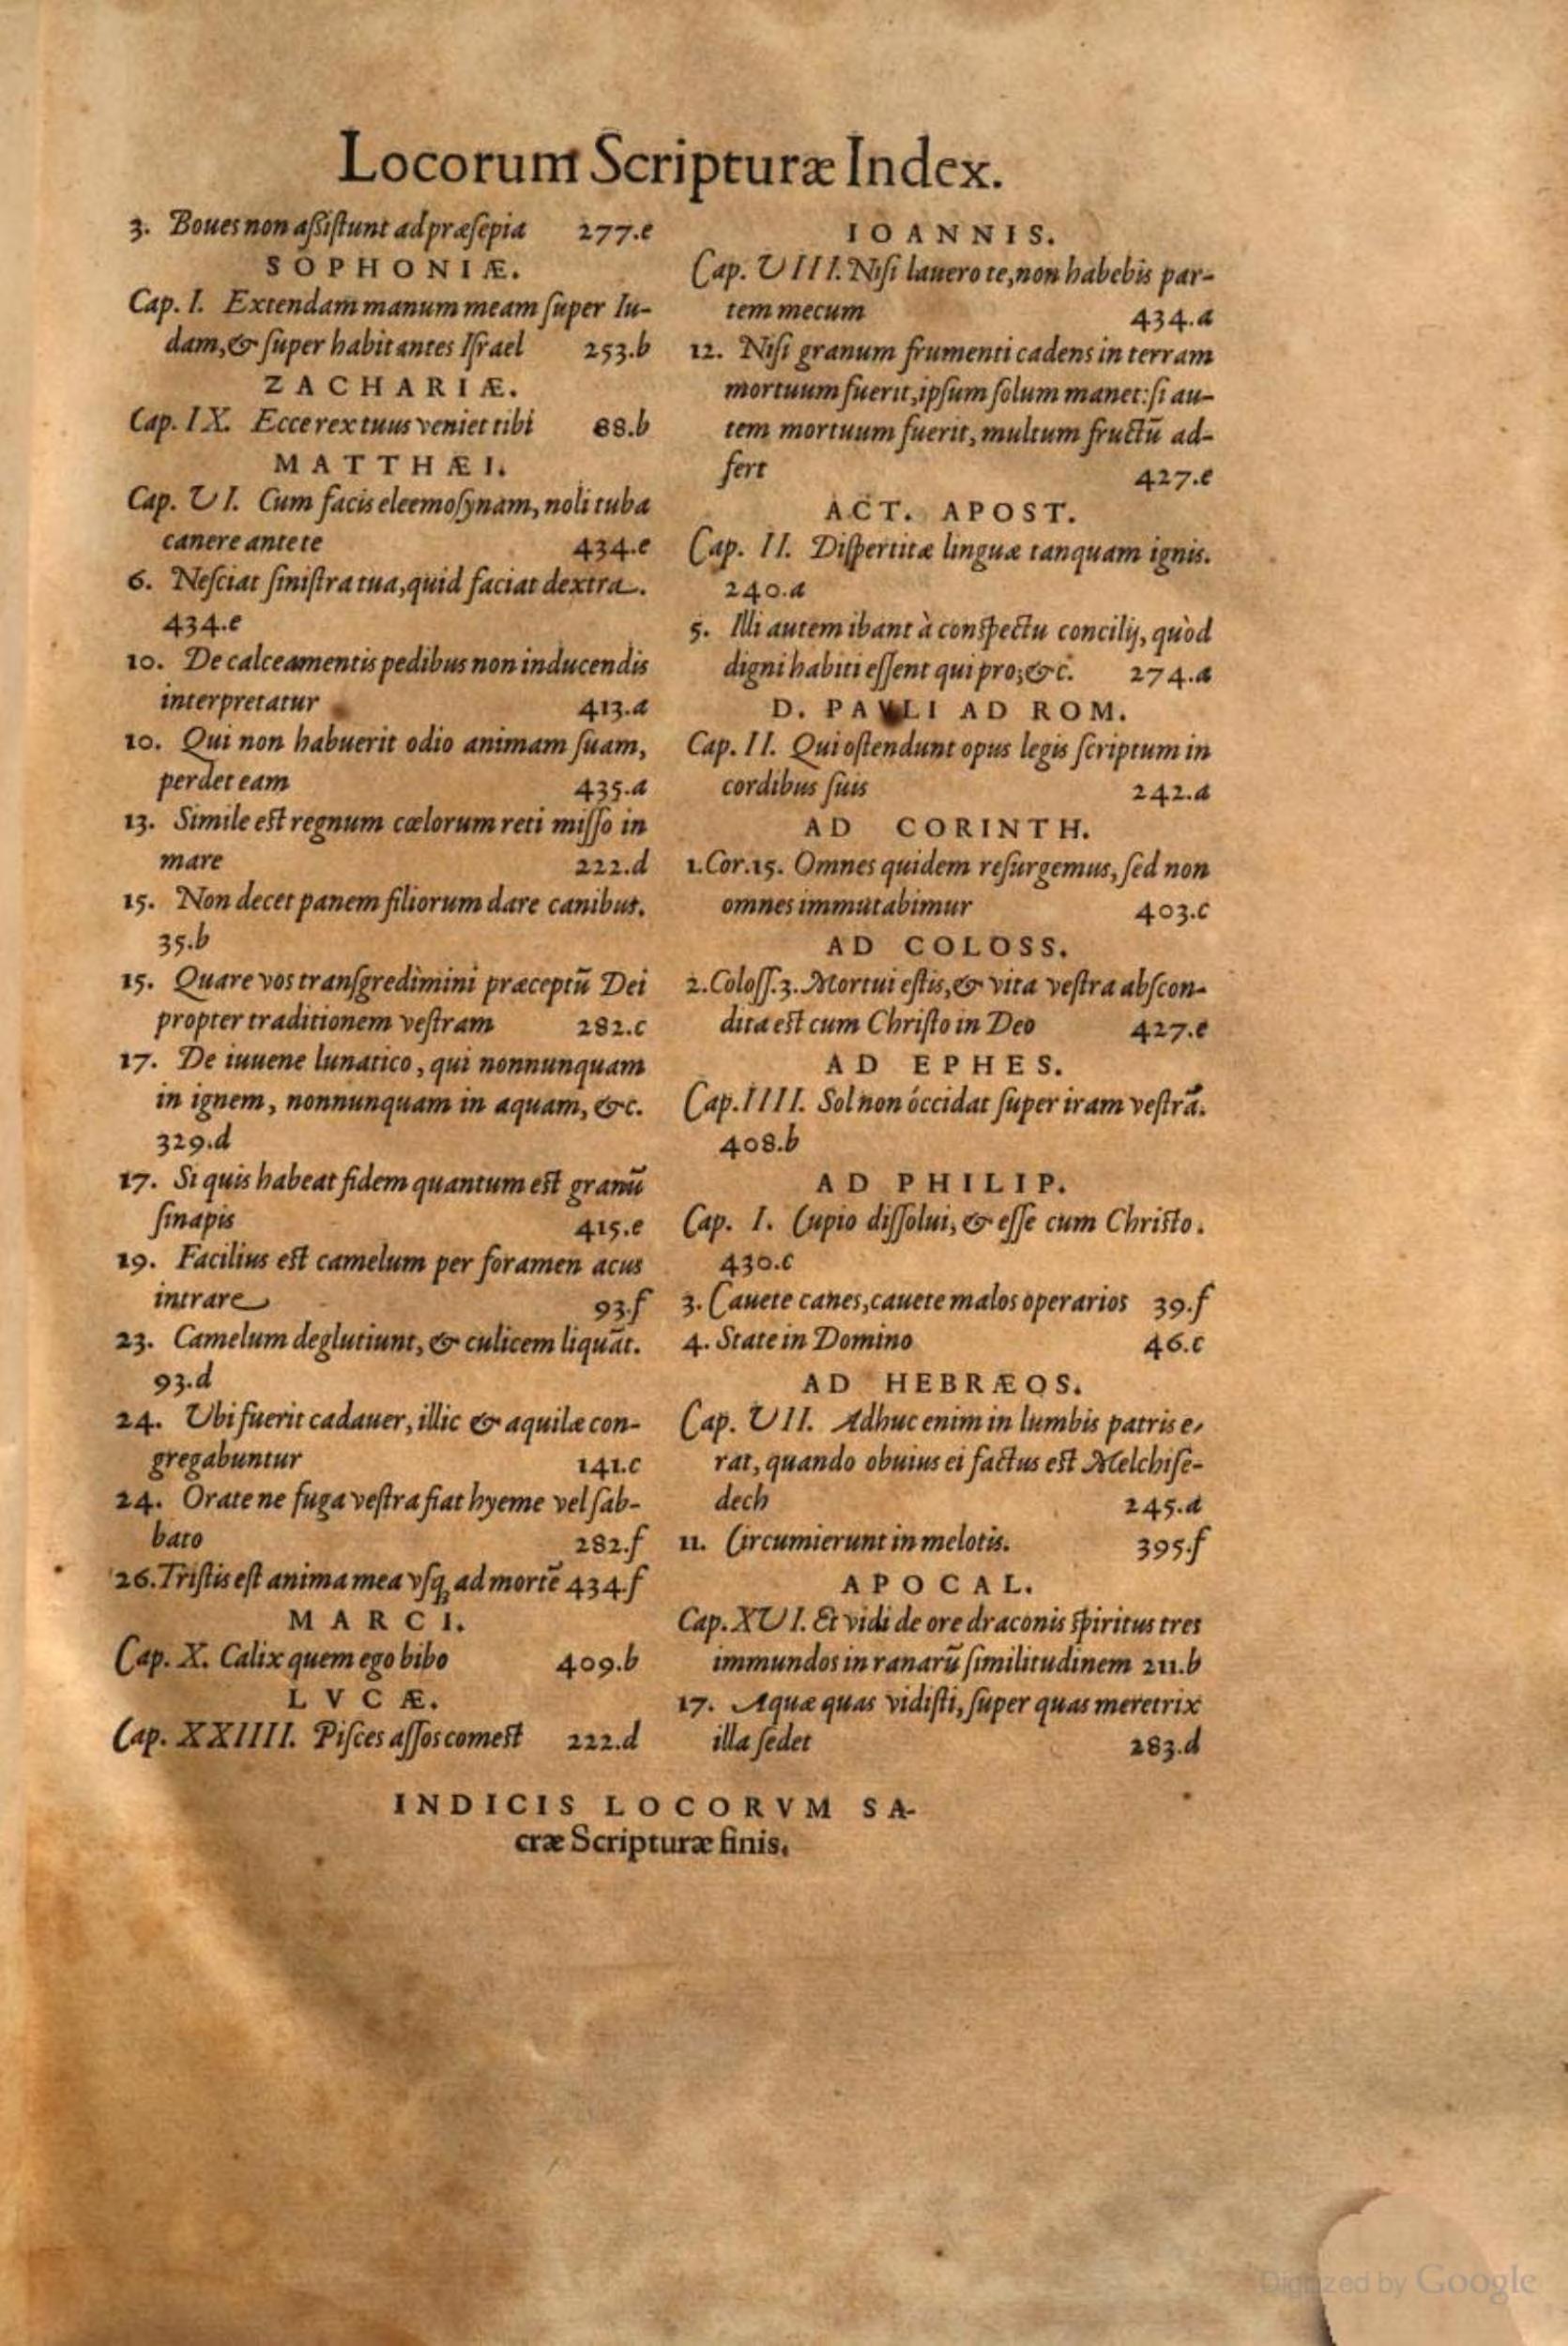 Locorum Scripturæ Index.
3. Boues non aſsiſtunt ad præſepia 277.e
SOPHONIÆ.
Cap. I. Extendam manum meam ſuper Iu-
dam, & ſuper habitantes Iſrael 253.b
ZACHARIÆ.
Cap. IX. Ecce rex tuus veniet tibi 88.b
MATTHÆI.
Cap. VI. Cum facis eleemoſynam, noli tuba
canere ante te 434.e
6. Neſciat ſiniſtra tua, quid faciat dextra.
434.e
10. De calceamentis pedibus non inducendis
interpretatur 413.a
10. Qui non habuerit odio animam ſuam,
perdet eam 435.a
13. Simile est regnum cœlorum reti miſſo in
mare 222.d
15. Non decet panem filiorum dare canibus.
35.b
15. Quare vos tranſgredimini præceptū Dei
propter traditionem veſtram 282.c
17. De iuuene lunatico, qui nonnunquam
in ignem, nonnunquam in aquam, &c.
329.d
17. Si quis habeat fidem quantum est granū
ſinapis 415.e
19. Facilius est camelum per foramen acus
intrare 93.f
23. Camelum deglutiunt, & culicem liquāt.
93.d
24. Ubi fuerit cadauer, illic & aquilæ con-
gregabuntur 141.c
24. Orate ne fuga veſtra fiat hyeme vel ſab-
bato 282.f
26. Triſtis eſt anima mea vſq; ad mortē 434.f
MARCI.
Cap. X. Calix quem ego bibo 409.b
LVCÆ.
Cap. XXIIII. Piſces aſſos comest 222.d
IOANNIS.
Cap. VIII. Niſi lauero te, non habebis par-
tem mecum 434.a
12. Niſi granum frumenti cadens in terram
mortuum fuerit, ipſum ſolum manet: ſi au-
tem mortuum fuerit, multum fructū ad-
fert 427.e
ACT. APOST.
Cap. II. Diſpertitæ linguæ tanquam ignis.
240.a
5. Illi autem ibant à conſpectu concilij, quòd
digni habiti eſſent qui pro, &c. 274.a
D. PAVLI AD ROM.
Cap. II. Qui oſtendunt opus legis ſcriptum in
cordibus ſuis 242.a
AD CORINTH.
1. Cor. 15. Omnes quidem reſurgemus, ſed non
omnes immutabimur 403.c
AD COLOSS.
2. Coloſſ. 3. Mortui eſtis, & vita veſtra abſcon-
dita est cum Chriſto in Deo 427.e
AD EPHES.
Cap. IIII. Sol non óccidat ſuper iram veſtrā.
408.b
AD PHILIP.
Cap. I. Cupio diſſolui, & eſſe cum Christo.
430.c
3. Cauete canes, cauete malos operarios 39.f
4. State in Domino 46.c
AD HEBRÆOS.
Cap. VII. Adhuc enim in lumbis patris e-
rat, quando obuius ei factus est Melchiſe-
dech 245.a
11. Circumierunt in melotis. 395.f
APOCAL.
Cap. XVI. Et vidi de ore draconis ſpiritus tres
immundos in ranarū ſimilitudinem 211.b
17. Aquæ quas vidiſti, ſuper quas meretrix
illa ſedet 283.d
INDICIS LOCORVM SA-
cræ Scripturæ finis.
Digitized by Google